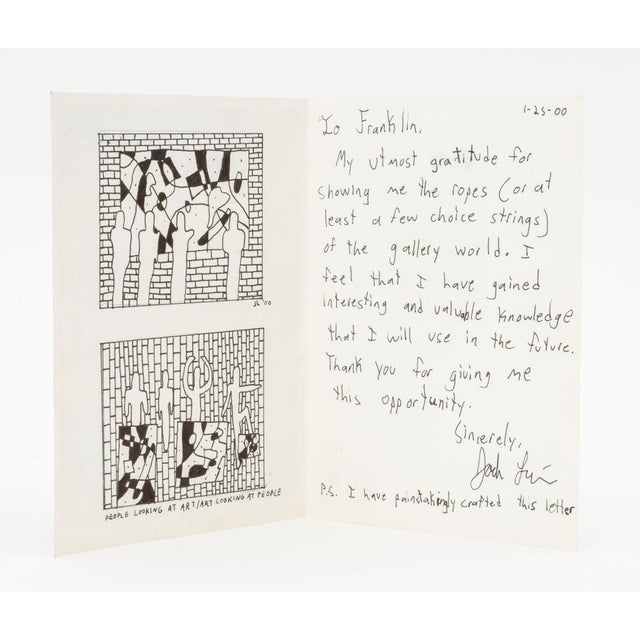 JL '00
PEOPLE LOOKING AT ART/ART LOOKING AT PEOPLE
1-25-00
Yo Franklin,
My utmost gratitude for
showing me the ropes (or at
least a few choice strings)
of the gallery world. I
feel that I have gained
interesting and valuable knowledge
that I will use in the future.
Thank you for giving me
this opportunity.
Sincerely,
P.S. I have painstakingly crafted this letter